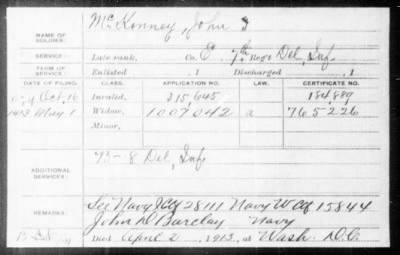 NAME OF SOLDIER: McKonney, John
SERVICE: Late rank, Co. E, 7th Reg't Del, Inf
TERM OF SERVICE: Enlisted , 1 Discharged , 1
DATE OF FILING. CLASS. APPLICATION NO. LAW. CERTIFICATE NO.
Oct, 16 Invalid, 315,645 184,889
1913 May 1 Widow, 1007042 a 765226
Minor,
ADDITIONAL SERVICES: 73-8 Del, Inf
REMARKS: See Navy 28111 Navy W Ctf 15844
John D Barclay Navy
Died April 2, 1913, at Wash. D.C.